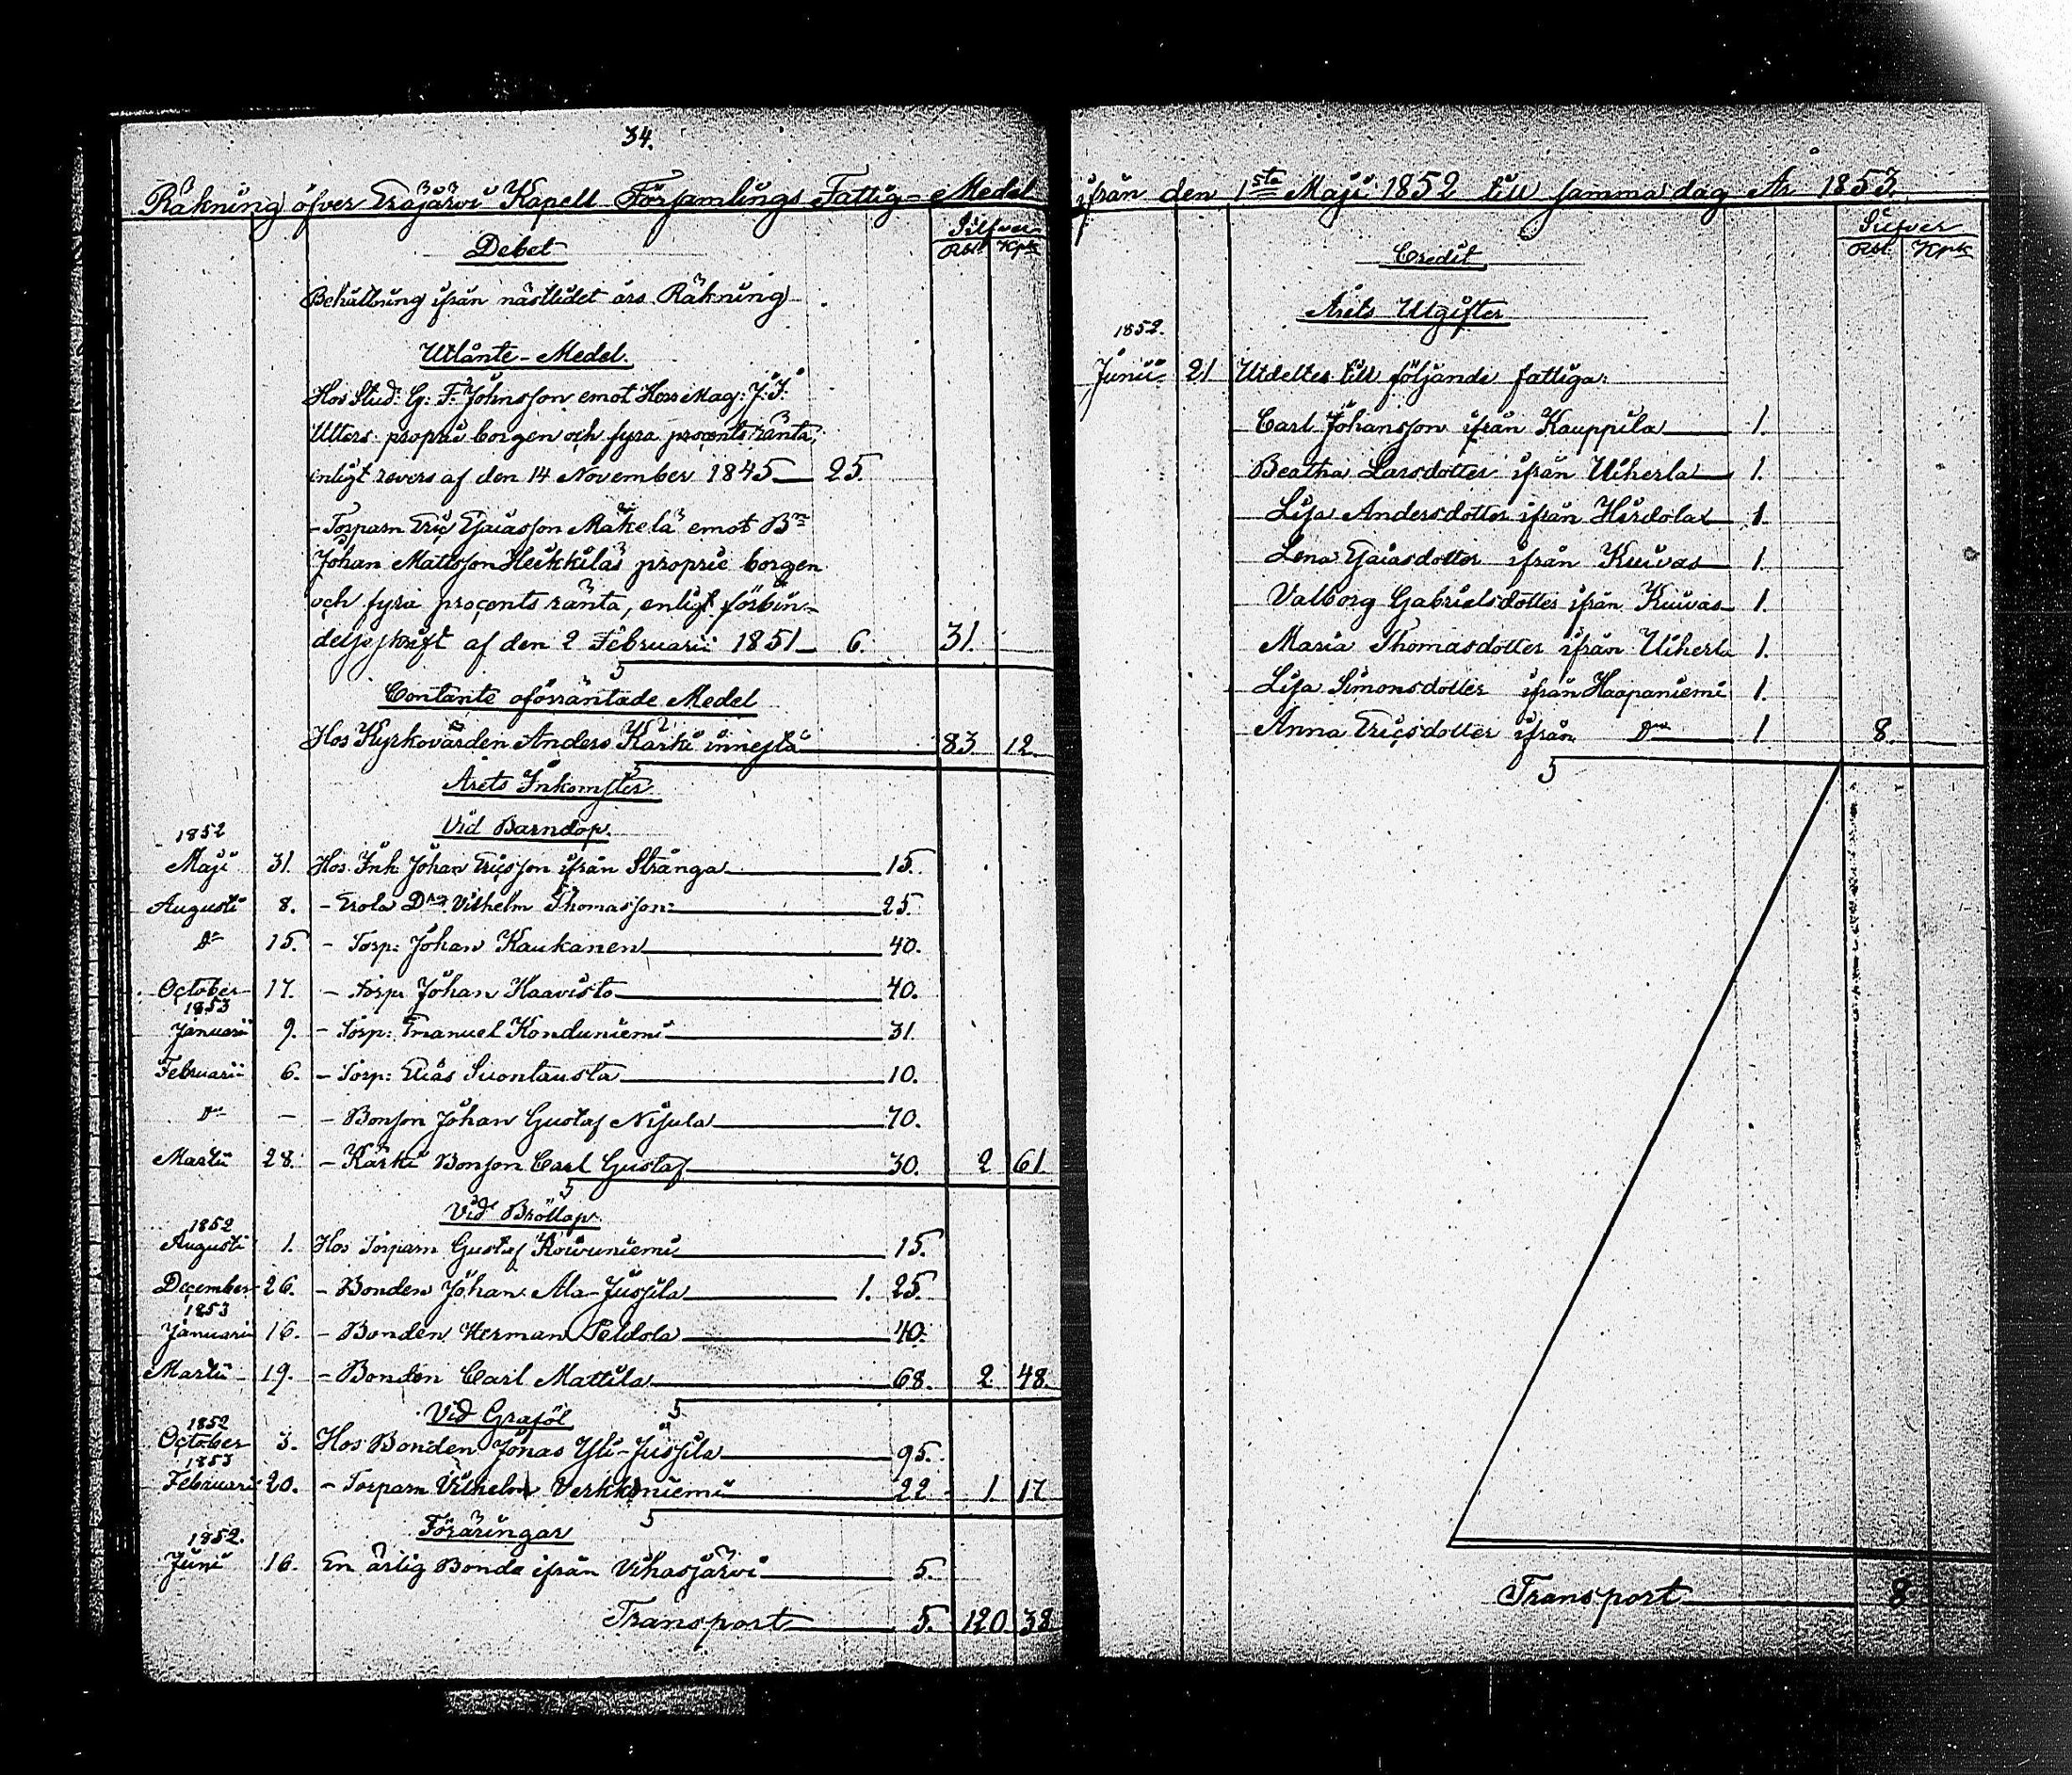 34.
Räkning öfver Eräjärvi Kapell Församlings Fattig-Medel
Silfver
Debet
Rbl Kpk
Behållning ifrån nästlidet års Räkning
Utlånte-Medel.
Hos Stud: G: F. Johnsson emot Herr Mag: J: J:
Utters proprie borgen och fyra procents ränta,
enligt revers af den 14 November 1845 25.
- Torparn Eric Esaiasson Mäkelä emot Bn
Johan Mattsson Heikkiläs proprie borgen
och fyra procents ränta, enligt förbin-
delseskrift af den 2 Februarii 1851 6. 31.
Contante oförräntade Medel
Hos Kyrkovärden Anders Kärki innestå 83 12.
Årets Inkomster
Vid Barndop.
1852
Maji 31. Hos Inh Johan Ericsson ifrån Stränga 15.
Augusti 8. - Erola Drg. Vilhelm Thomasson 25.
Do 15. - Torp: Johan Kaukanen 40.
October 17. - Torp: Johan Haavisto 40.
1853
Januarii 9. - Torp: Emanuel Konduniemi 31.
Februarii 6. - Torp: Elias Suontausta 10.
Do - - Bonson Johan Gustaf Nisula 70.
Martii 28. - Kärki Bonson Carl Gustaf 30. 2 61
Vid Bröllop.
1852
Augusti 1. Hos Torparn Gustaf Koivuniemi 15.
December 26. - Bonden Johan Ala-Jussila 1. 25.
1853
Januarii 16. - Bonden Herman Peldola 40.
Martii 19. - Bonden Carl Mattila 68. 2 48
Vid Graföl
1852
October 3. Hos Bonden Jonas Yli-Jussila 95.
1853
Februarii 20. - Torparn Vilhelm Verkkoniemi 22 1. 17
Föräringar
1852.
Juni 16. En ärlig Bonde ifrån Vihasjärvi 5.
Transport 5. 120. 38
ifrån den 1sta Maji 1852 till samma dag År 1853.
Silfver
Credit
Rbl. Kpk
Årets Utgifter
1852.
Junii 21 Utdeltes till följande fattiga:
Carl Johansson ifrån Kauppila 1.
Beatha Larsdotter ifrån Uiherla 1.
Lisa Andersdotter ifrån Hirdola 1.
Lena Esaiasdotter ifrån Kuivas 1.
Valborg Gabrielsdotter ifrån Kuivas 1.
Maria Thomasdotter ifrån Uiherla 1.
Lisa Simonsdotter ifrån Haapaniemi 1.
Anna Ericsdotter ifrån Do 1 8.
Transport 8